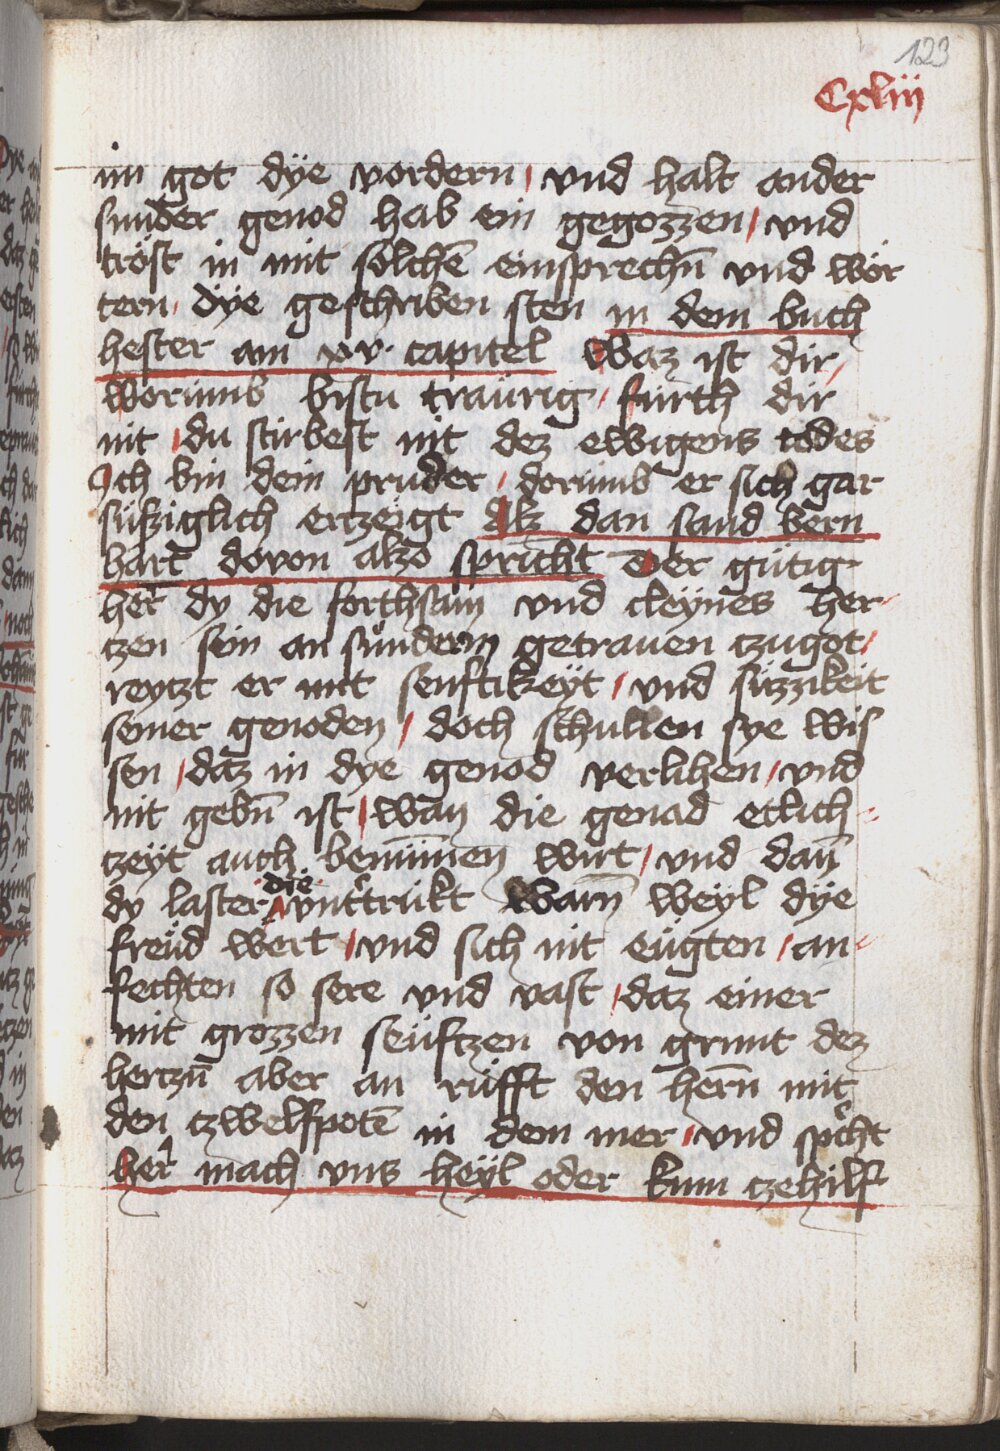 123
Cxliii
im got dÿe vordern / vnd halt ander
sunder genod hab ein gegozzen / vnd
tröst in mit sölchē einsprechn̄ vnd wör
tern / dÿe geschriben sten in dem buch
hester am xv · capitel Waz ist dir /
worumb bistu traürig / fürth dir
nit / du stirbest nit dez ewigens todes
Ich bin dein pruder / dorumb er sich gar
süssiglich ertzeigt Alz dan sand bern
hart dovon alzo spricht Der gütig
her dy die forthsam vnd cleÿnes her-
tzen sein an sündern getrauen czugot /
reytzt er mit senftikeÿt / vnd süzzikeit
seiner genoden / doch schullen sye wis
sen / daz in dye genod verlihen / vnd
nit gebn̄ ist / wan die genad etlich-
czeÿt auch benūmen wirt / vnd dan̄
die
dy laster vnttrukt warn̄ weyl dÿe
freüd wert / vnd sich nit eügten / an-
fechten so sere vnd vast / daz einer
mit grozzen seüftzen von grunt dez
hertzn̄ aber an rüfft den hern̄ mit
den czwelfpotē in dem mer / vnd spcht
her mach vns heÿl oder kum czehilf